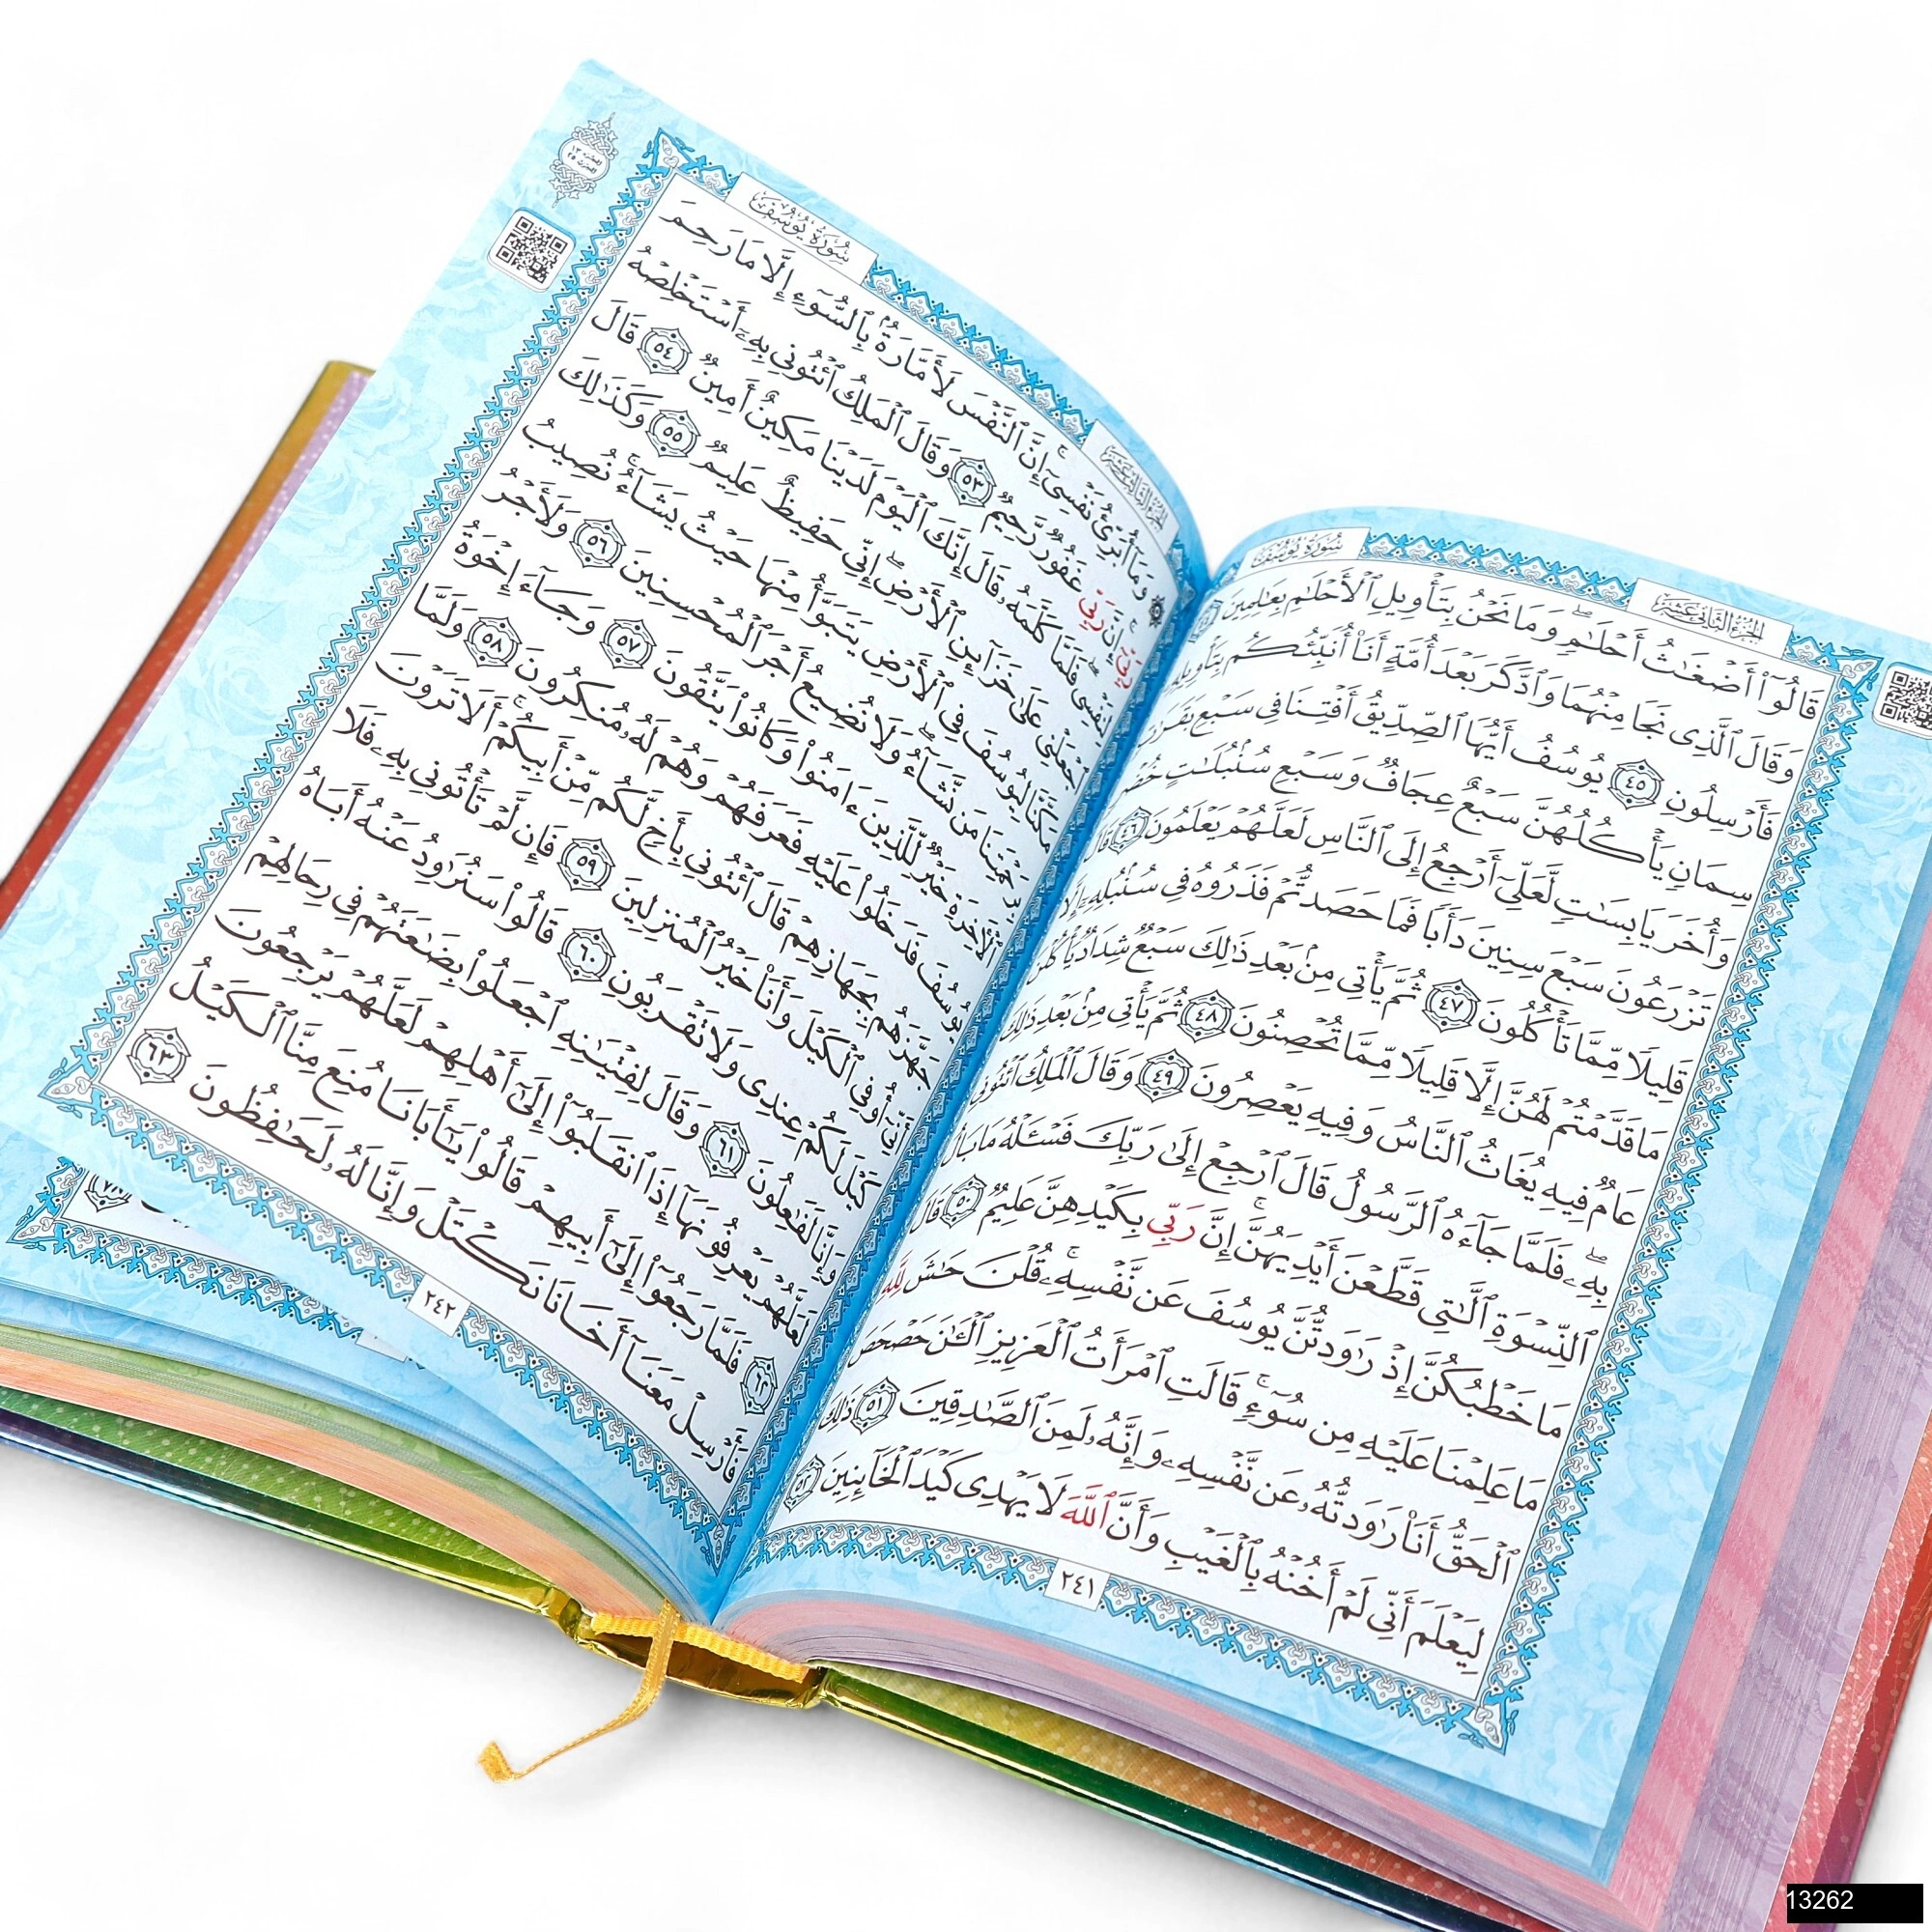 سُورَةُ يُوسُفَ
الجُزْءُ الثَّانِي عَشَرَ
قَالُوٓا۟ أَضْغَٰثُ أَحْلَٰمٍ ۖ وَمَا نَحْنُ بِتَأْوِيلِ ٱلْأَحْلَٰمِ بِعَٰلِمِينَ
وَقَالَ ٱلَّذِى نَجَا مِنْهُمَا وَٱدَّكَرَ بَعْدَ أُمَّةٍ أَنَا۠ أُنَبِّئُكُم بِتَأْوِيلِهِۦ
فَأَرْسِلُونِ ٤٥ يُوسُفُ أَيُّهَا ٱلصِّدِّيقُ أَفْتِنَا فِى سَبْعِ بَقَرَٰتٍ
سِمَانٍ يَأْكُلُهُنَّ سَبْعٌ عِجَافٌ وَسَبْعِ سُنۢبُلَٰتٍ خُضْرٍ
وَأُخَرَ يَابِسَٰتٍ لَّعَلِّىٓ أَرْجِعُ إِلَى ٱلنَّاسِ لَعَلَّهُمْ يَعْلَمُونَ ٤٦ قَالَ
تَزْرَعُونَ سَبْعَ سِنِينَ دَأَبًا فَمَا حَصَدتُّمْ فَذَرُوهُ فِى سُنۢبُلِهِۦٓ إِلَّا
قَلِيلًا مِّمَّا تَأْكُلُونَ ٤٧ ثُمَّ يَأْتِى مِنۢ بَعْدِ ذَٰلِكَ سَبْعٌ شِدَادٌ يَأْكُلْنَ
مَا قَدَّمْتُمْ لَهُنَّ إِلَّا قَلِيلًا مِّمَّا تُحْصِنُونَ ٤٨ ثُمَّ يَأْتِى مِنۢ بَعْدِ ذَٰلِكَ
عَامٌ فِيهِ يُغَاثُ ٱلنَّاسُ وَفِيهِ يَعْصِرُونَ ٤٩ وَقَالَ ٱلْمَلِكُ ٱئْتُونِى
بِهِۦ ۖ فَلَمَّا جَآءَهُ ٱلرَّسُولُ قَالَ ٱرْجِعْ إِلَىٰ رَبِّكَ فَسْـَٔلْهُ مَا بَالُ
ٱلنِّسْوَةِ ٱلَّٰتِى قَطَّعْنَ أَيْدِيَهُنَّ ۚ إِنَّ رَبِّى بِكَيْدِهِنَّ عَلِيمٌ ٥٠ قَالَ
مَا خَطْبُكُنَّ إِذْ رَٰوَدتُّنَّ يُوسُفَ عَن نَّفْسِهِۦ ۚ قُلْنَ حَٰشَ لِلَّهِ
مَا عَلِمْنَا عَلَيْهِ مِن سُوٓءٍ ۚ قَالَتِ ٱمْرَأَتُ ٱلْعَزِيزِ ٱلْـَٰٔنَ حَصْحَصَ
ٱلْحَقُّ أَنَا۠ رَٰوَدتُّهُۥ عَن نَّفْسِهِۦ وَإِنَّهُۥ لَمِنَ ٱلصَّٰدِقِينَ ٥١ ذَٰلِكَ
لِيَعْلَمَ أَنِّى لَمْ أَخُنْهُ بِٱلْغَيْبِ وَأَنَّ ٱللَّهَ لَا يَهْدِى كَيْدَ ٱلْخَآئِنِينَ ٥٢
٢٤١
سُورَةُ يُوسُفَ
الجُزْءُ الثَّالِثُ عَشَرَ
الجزء ١٣
الحزب ٢٥
وَمَآ أُبَرِّئُ نَفْسِىٓ ۚ إِنَّ ٱلنَّفْسَ لَأَمَّارَةٌۢ بِٱلسُّوٓءِ إِلَّا مَا رَحِمَ
رَبِّىٓ ۚ إِنَّ رَبِّى غَفُورٌ رَّحِيمٌ ٥٣ وَقَالَ ٱلْمَلِكُ ٱئْتُونِى بِهِۦٓ أَسْتَخْلِصْهُ
لِنَفْسِى ۖ فَلَمَّا كَلَّمَهُۥ قَالَ إِنَّكَ ٱلْيَوْمَ لَدَيْنَا مَكِينٌ أَمِينٌ ٥٤ قَالَ
ٱجْعَلْنِى عَلَىٰ خَزَآئِنِ ٱلْأَرْضِ ۖ إِنِّى حَفِيظٌ عَلِيمٌ ٥٥ وَكَذَٰلِكَ
مَكَّنَّا لِيُوسُفَ فِى ٱلْأَرْضِ يَتَبَوَّأُ مِنْهَا حَيْثُ يَشَآءُ ۚ نُصِيبُ
بِرَحْمَتِنَا مَن نَّشَآءُ ۖ وَلَا نُضِيعُ أَجْرَ ٱلْمُحْسِنِينَ ٥٦ وَلَأَجْرُ
ٱلْـَٔاخِرَةِ خَيْرٌ لِّلَّذِينَ ءَامَنُوا۟ وَكَانُوا۟ يَتَّقُونَ ٥٧ وَجَآءَ إِخْوَةُ
يُوسُفَ فَدَخَلُوا۟ عَلَيْهِ فَعَرَفَهُمْ وَهُمْ لَهُۥ مُنكِرُونَ ٥٨ وَلَمَّا
جَهَّزَهُم بِجَهَازِهِمْ قَالَ ٱئْتُونِى بِأَخٍ لَّكُم مِّنْ أَبِيكُمْ ۚ أَلَا تَرَوْنَ
أَنِّىٓ أُوفِى ٱلْكَيْلَ وَأَنَا۠ خَيْرُ ٱلْمُنزِلِينَ ٥٩ فَإِن لَّمْ تَأْتُونِى بِهِۦ فَلَا
كَيْلَ لَكُمْ عِندِى وَلَا تَقْرَبُونِ ٦٠ قَالُوا۟ سَنُرَٰوِدُ عَنْهُ أَبَاهُ
وَإِنَّا لَفَٰعِلُونَ ٦١ وَقَالَ لِفِتْيَٰنِهِ ٱجْعَلُوا۟ بِضَٰعَتَهُمْ فِى رِحَالِهِمْ
لَعَلَّهُمْ يَعْرِفُونَهَآ إِذَا ٱنقَلَبُوٓا۟ إِلَىٰٓ أَهْلِهِمْ لَعَلَّهُمْ يَرْجِعُونَ
٦٢ فَلَمَّا رَجَعُوٓا۟ إِلَىٰٓ أَبِيهِمْ قَالُوا۟ يَٰٓأَبَانَا مُنِعَ مِنَّا ٱلْكَيْلُ
فَأَرْسِلْ مَعَنَآ أَخَانَا نَكْتَلْ وَإِنَّا لَهُۥ لَحَٰفِظُونَ ٦٣
٢٤٢
13262